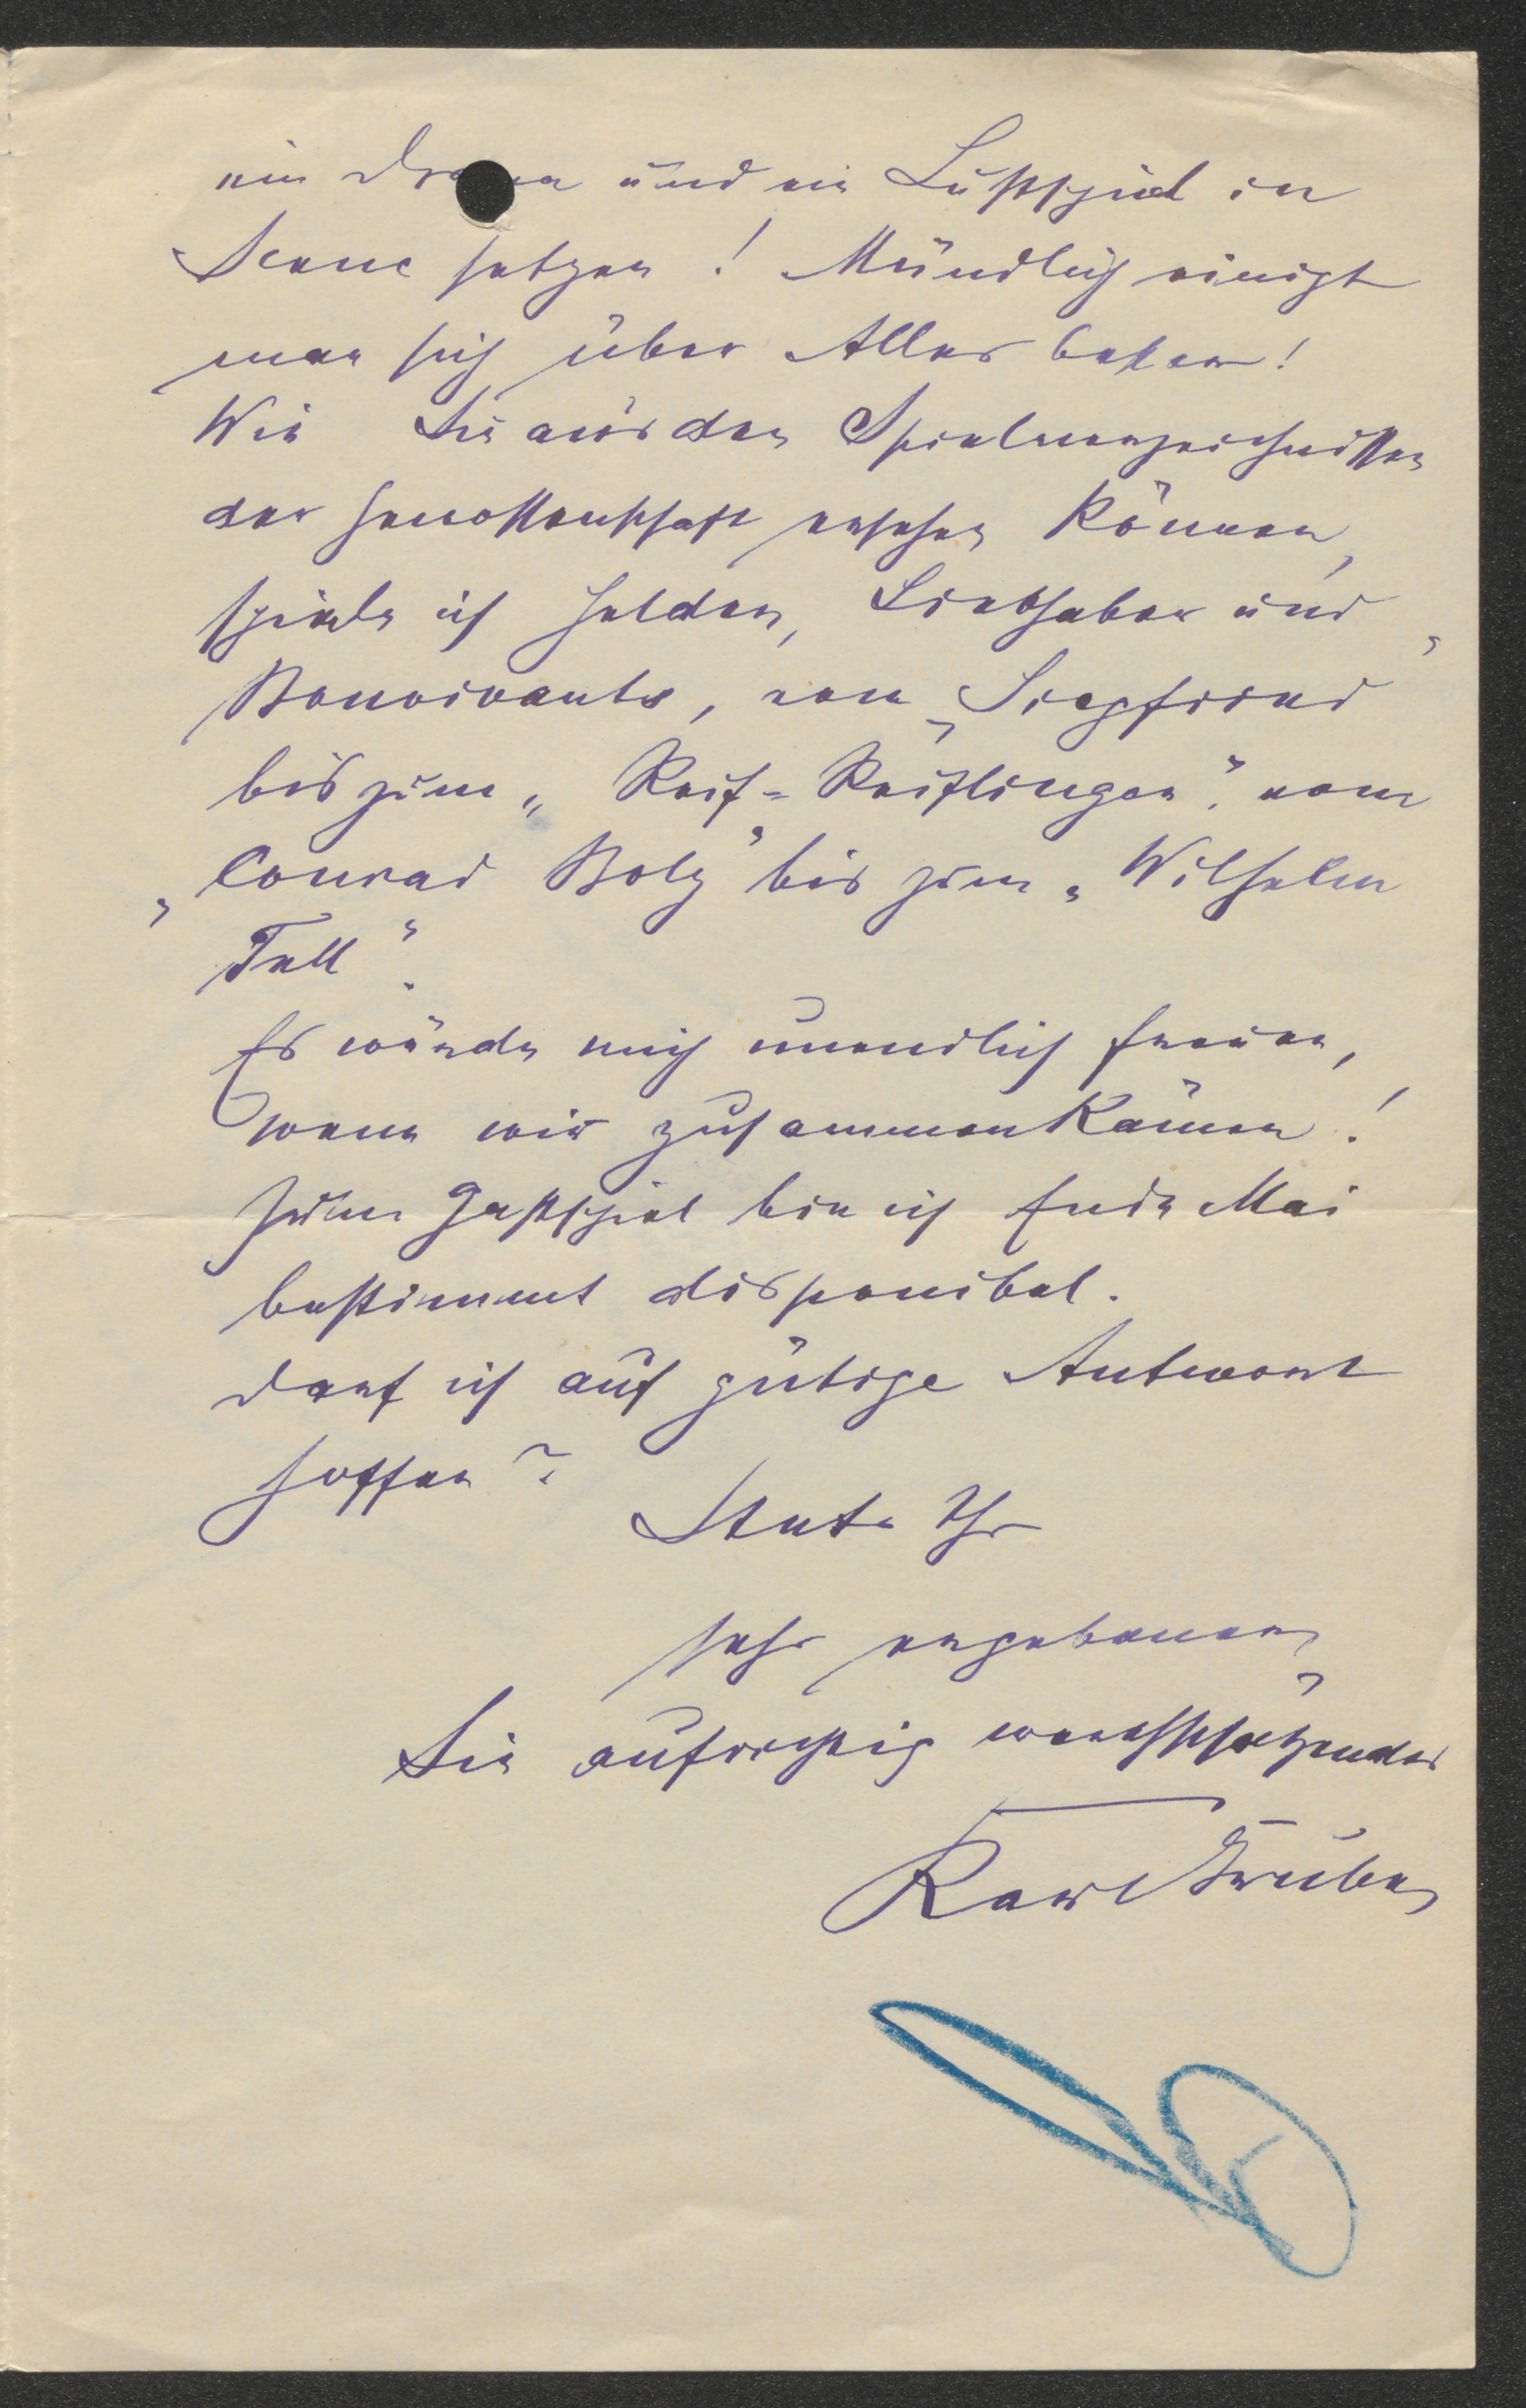 ein Drama und ein Lustspiel in
Scene setzen! Mündlich einigt
man sich über Alles besser!
Wie Sie aus den Spielverzeichnissen
der Genossenschaft ersehen können,
spiele ich Helden, Liebhaber und
Bonvivants, vom „Siegfried“
bis zum „Reif-Reiflingen“, vom
„Conrad Bolz“ bis zum „Wilhelm
Tell“.
Es würde mich unendlich freuen,
wenn wir zusammen kämen!
Zum Gastspiel bin ich Ende Mai
bestimmt disponibel.
Darf ich auf gütige Antwort
hoffen?
Stets Ihr
sehr ergebener,
Sie aufrichtig wertschätzender
Karl